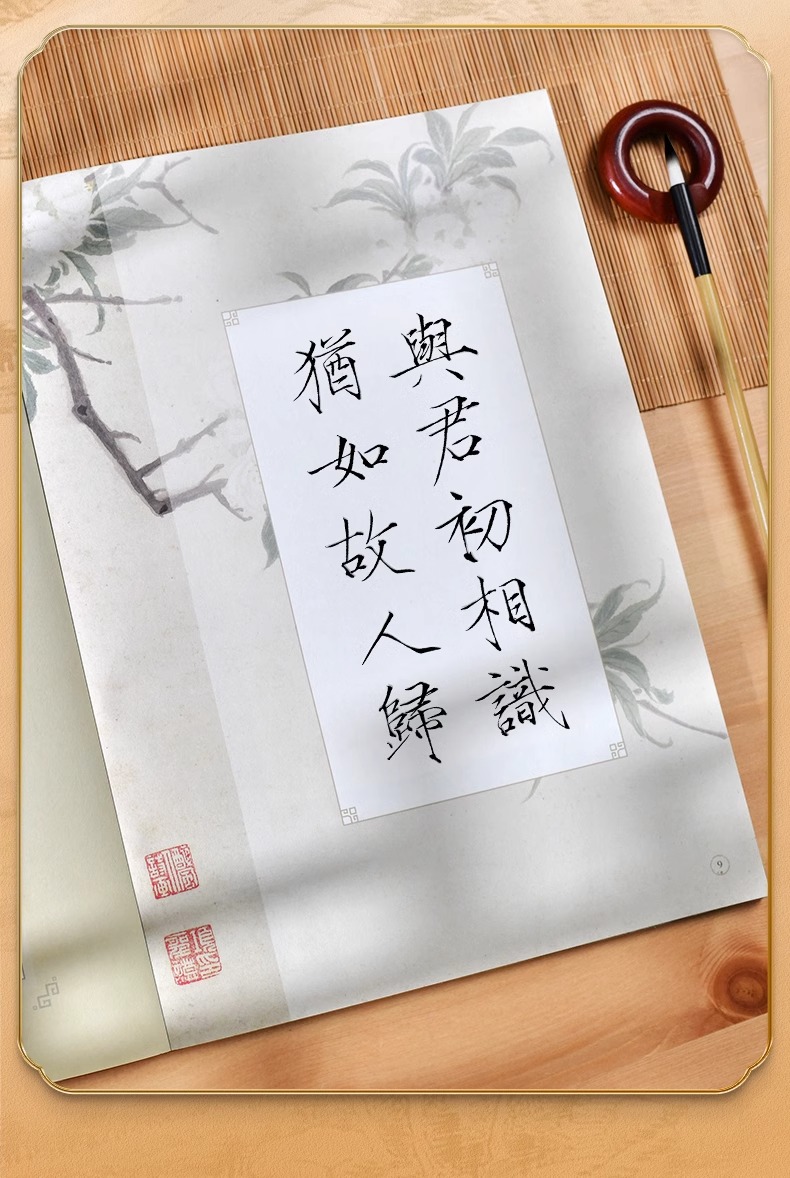 與君初相識
猶如故人歸
9